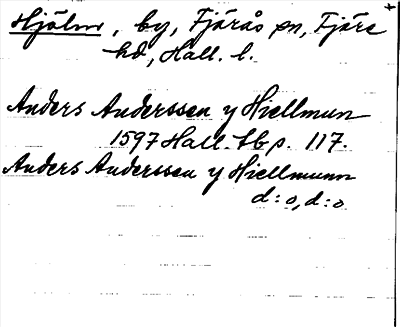 Hjälm, by, Fjärås sn, Fjäre
hd, Hall. l.
Anders Anderssen y Hiellmun
1597 Hall. tb p. 117.
Anders Anderssen y Hiellmunn
d:o, d:o